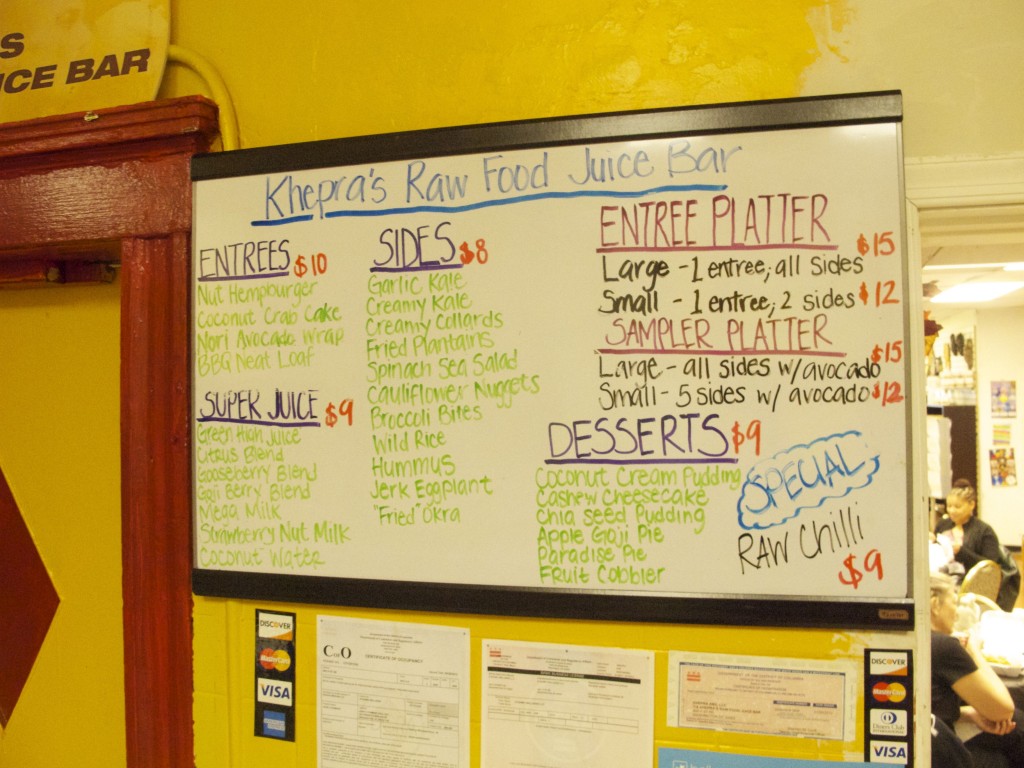 S
ICE BAR
Khepra's Raw Food Juice Bar
ENTREES $10
Nut Hempburger
Coconut Crab Cake
Nori Avocado Wrap
BBQ Neat Loaf
SUPER JUICE $9
Green High Juice
Citrus Blend
Gooseberry Blend
Goji Berry Blend
Mega Milk
Strawberry Nut Milk
Coconut Water
SIDES $8
Garlic Kale
Creamy Kale
Creamy Collards
Fried Plantains
Spinach Sea Salad
Cauliflower Nuggets
Broccoli Bites
Wild Rice
Hummus
Jerk Eggplant
"Fried" Okra
ENTREE PLATTER
Large - 1 entree, all sides $15
Small - 1 entree, 2 sides $12
SAMPLER PLATTER
Large - all sides w/ avocado $15
Small - 5 sides w/ avocado $12
DESSERTS $9
Coconut Cream Pudding
Cashew Cheesecake
Chia Seed Pudding
Apple Goji Pie
Paradise Pie
Fruit Cobbler
SPECIAL
RAW Chilli
$9
DISCOVER
MasterCard
VISA
C of O
CERTIFICATE OF OCCUPANCY
DISCOVER
MasterCard
Diners Club
VISA